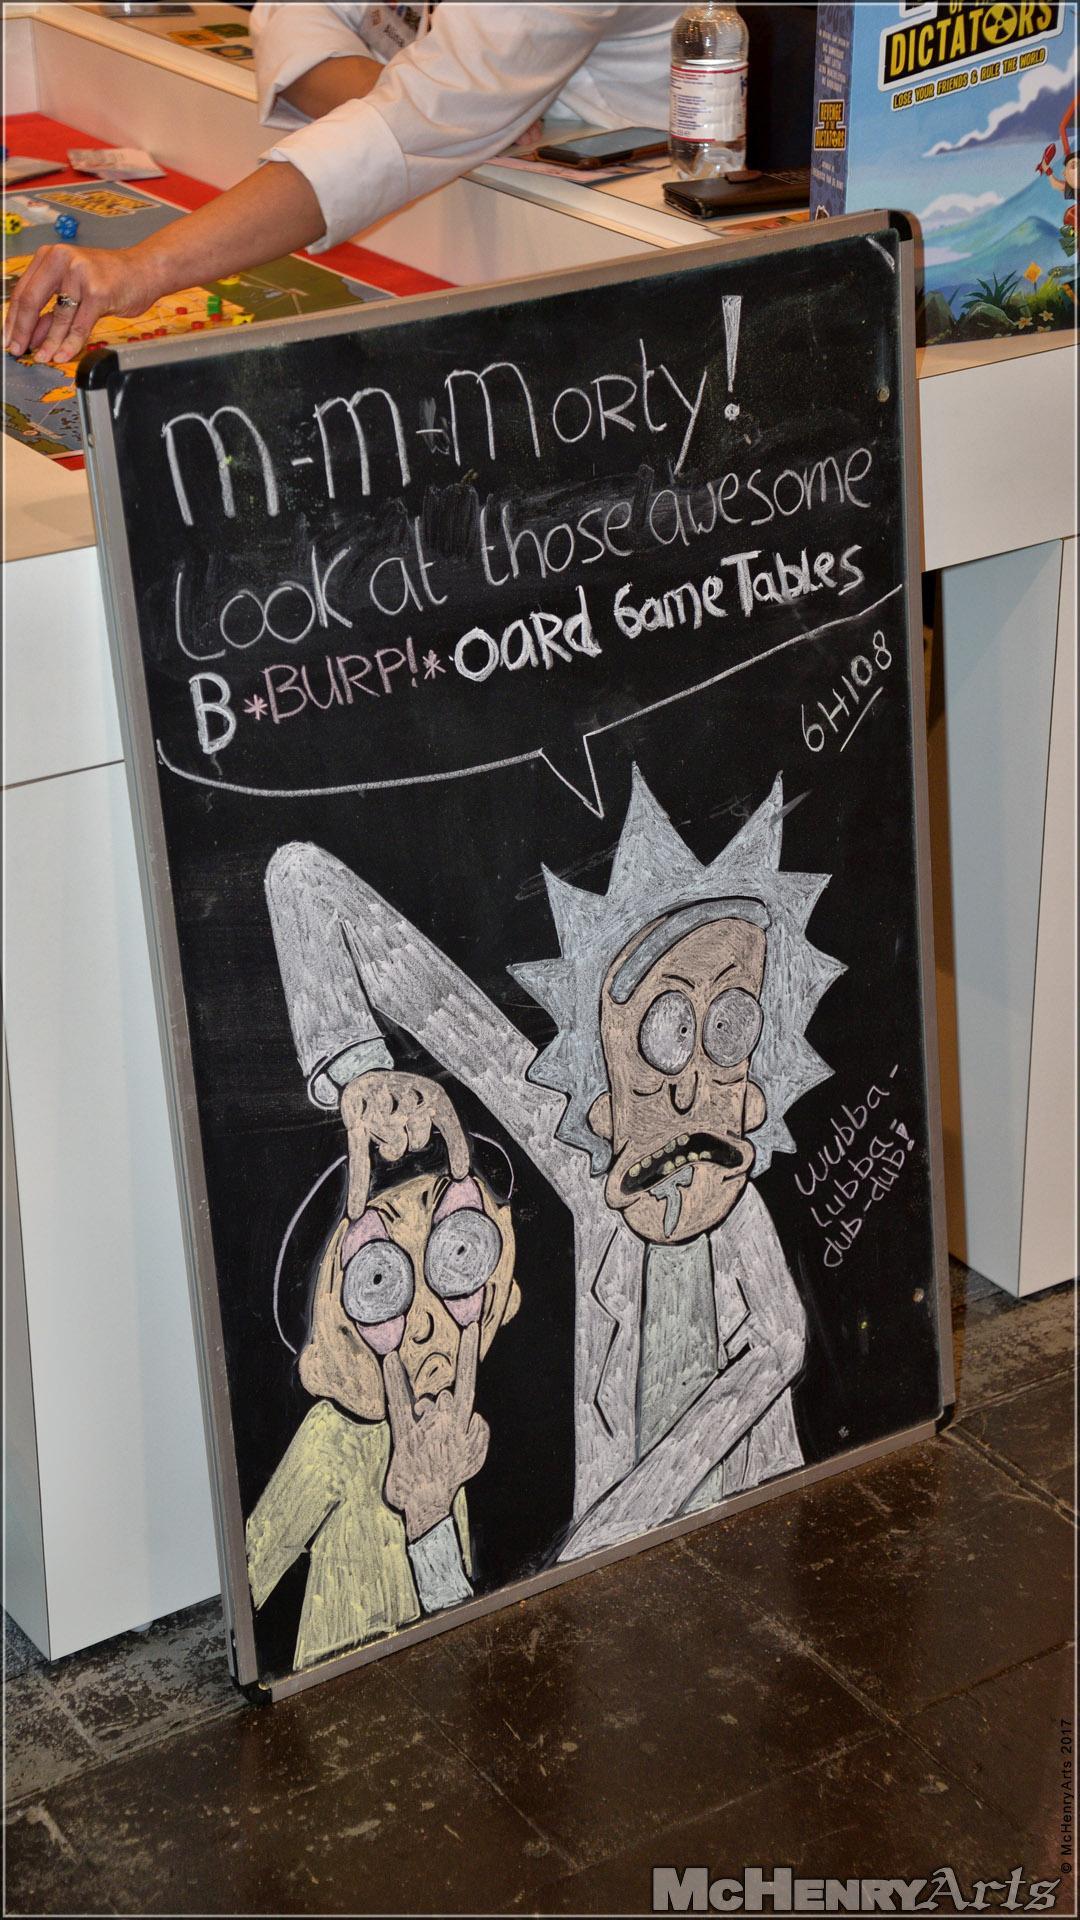 DICTATORS
LOSE YOUR FRIENDS & RULE THE WORLD
REVENGE
OF THE
DICTATORS
M-M-Morty!
Look at those awesome
B*BURP!*oard Game Tables
6H108
Wubba-
Lubba-
dub-dub!
© McHenryArts 2017
McHenryArts